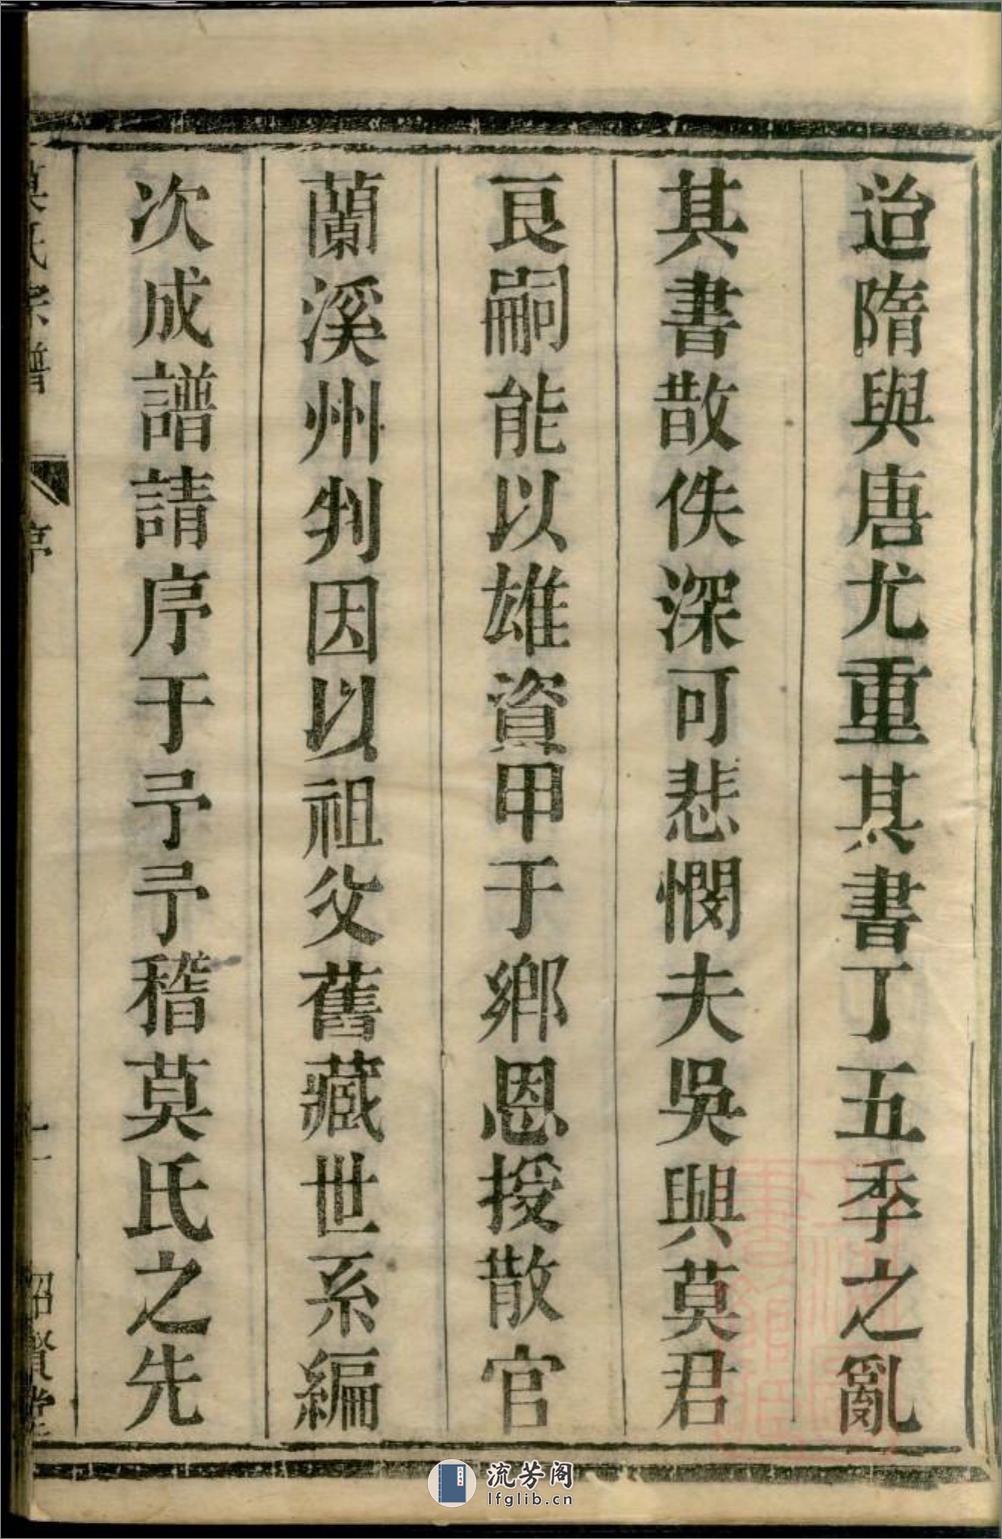 迨隋與唐尤重其書丁五季之亂
其書散佚深可悲憫夫吳興莫君
良嗣能以雄資甲于鄉恩授散官
蘭溪州判因以祖父舊藏世系編
次成譜請序于予予稽莫氏之先
莫氏宗譜
序
二
紹賢堂
流芳阁
lfglib.cn